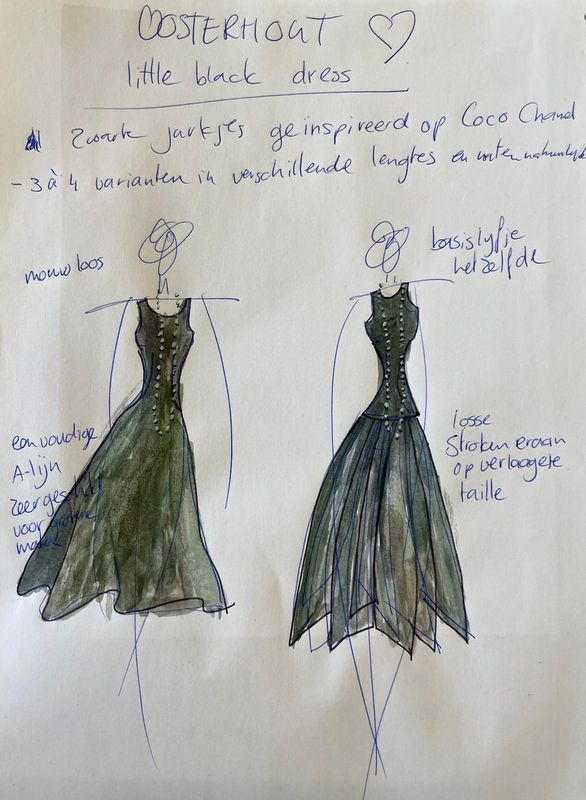 OOSTERHOUT ♡
little black dress
zwarte jurkjes geinspireerd op Coco Chanel
- 3 à 4 varianten in verschillende lengtes en maten natuurlijk
mouwloos
basislijfje
hetzelfde
eenvoudige
A-lijn
zeer geschikt
voor grotere
maten
losse
stroken eraan
op verlaagde
taille